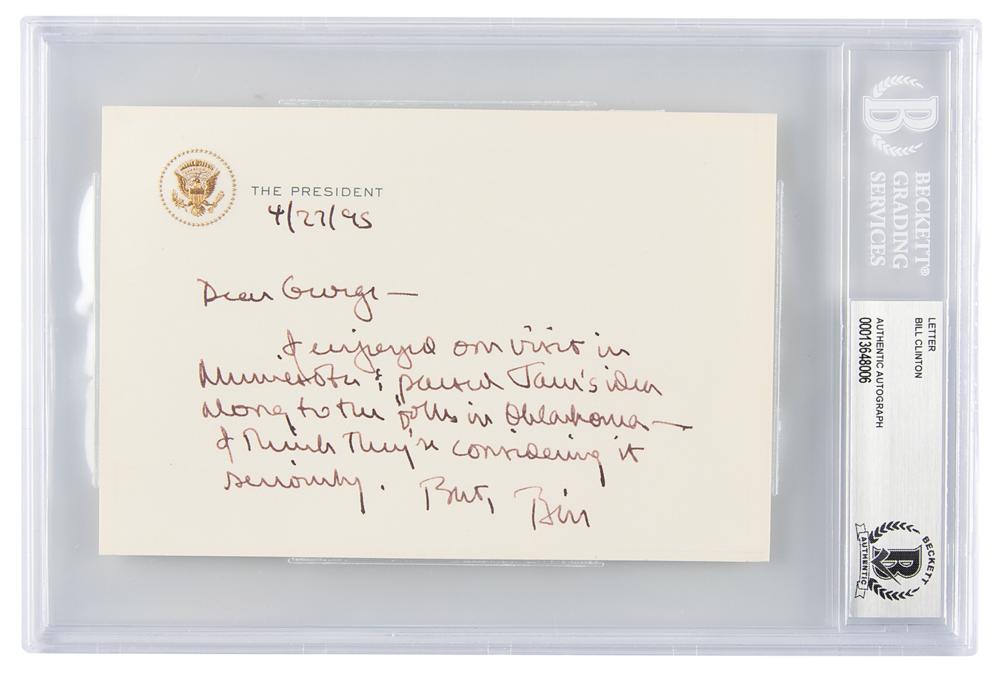 THE PRESIDENT
4/27/95
Dear George —
I enjoyed our visit in
Minnesota & passed Jan's idea
along to the folks in Oklahoma —
I think they're considering it
seriously. Best, Bill
B
BECKETT®
GRADING
SERVICES
LETTER
BILL CLINTON
AUTHENTIC AUTOGRAPH
00013648006
BECKETT
B
AUTHENTIC